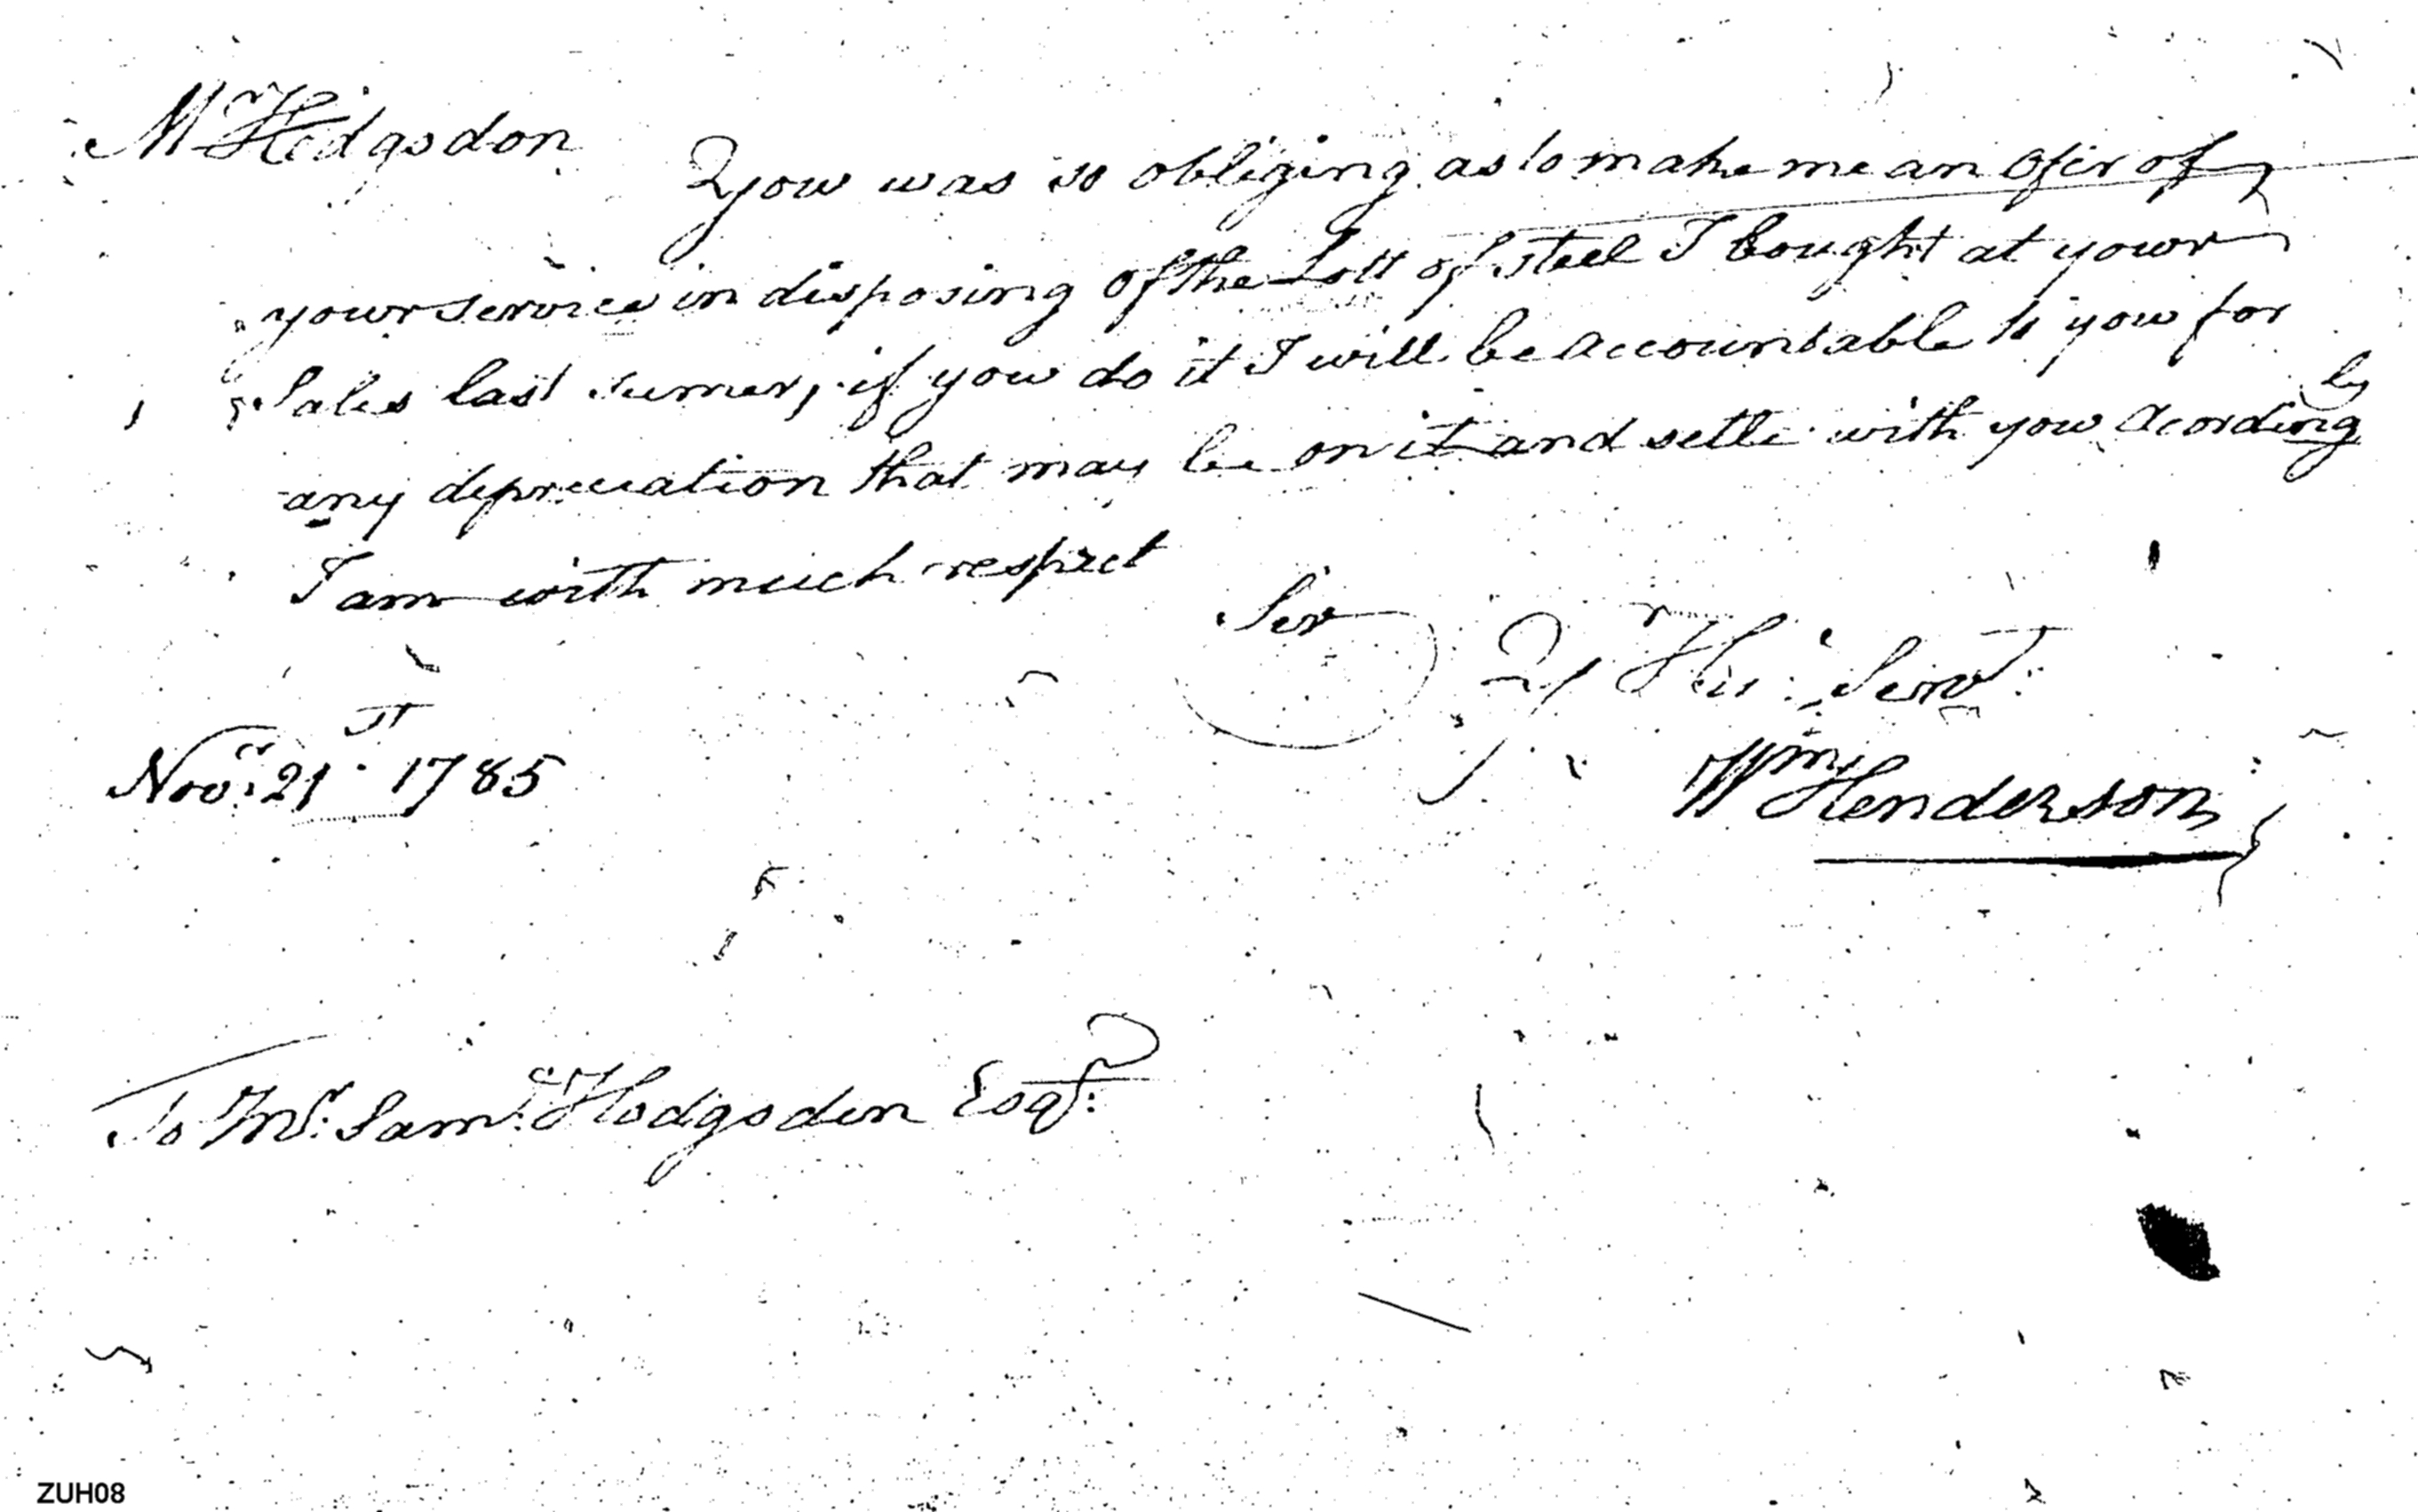 Mr Hodgsdon
Yow was so obliging as to make me an ofer of
yowr servics in disposing of the Lott of steel I bought at yowr
Sales last sumer, if yow do it I will be accountable to yow for
any depreciation that may be on it and settle with yow acordingly
I am with much respect
Sir
Yr Hu: Servt:
Novr: 21st 1785
Wm Henderson
To Mr: Saml: Hodgsden Esqr:
ZUH08